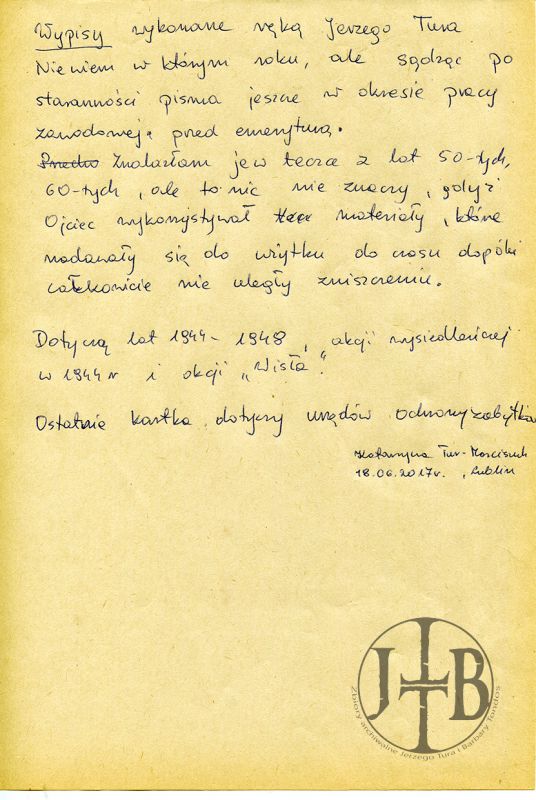 Wypisy wykonane ręką Jerzego Tura
Nie wiem w którym roku, ale sądząc po
staranności pisma jeszcze w okresie pracy
zawodowej, przed emeryturą.
Znalazłam je w teczce z lat 50-tych,
60-tych, ale to nic nie znaczy, gdyż
Ojciec wykorzystywał materiały, które
nadawały się do użytku do czasu dopóki
całkowicie nie uległy zniszczeniu.
Dotyczą lat 1944-1948, akcji wysiedleńczej
w 1944 r i akcji „Wisła".
Ostatnie kartka dotyczy urzędów ochrony zabytków
Katarzyna Tur-Marciszuk
18.06.2017r., Lublin
JTB
Zbiory archiwalne Jerzego Tura i Barbary Tondos